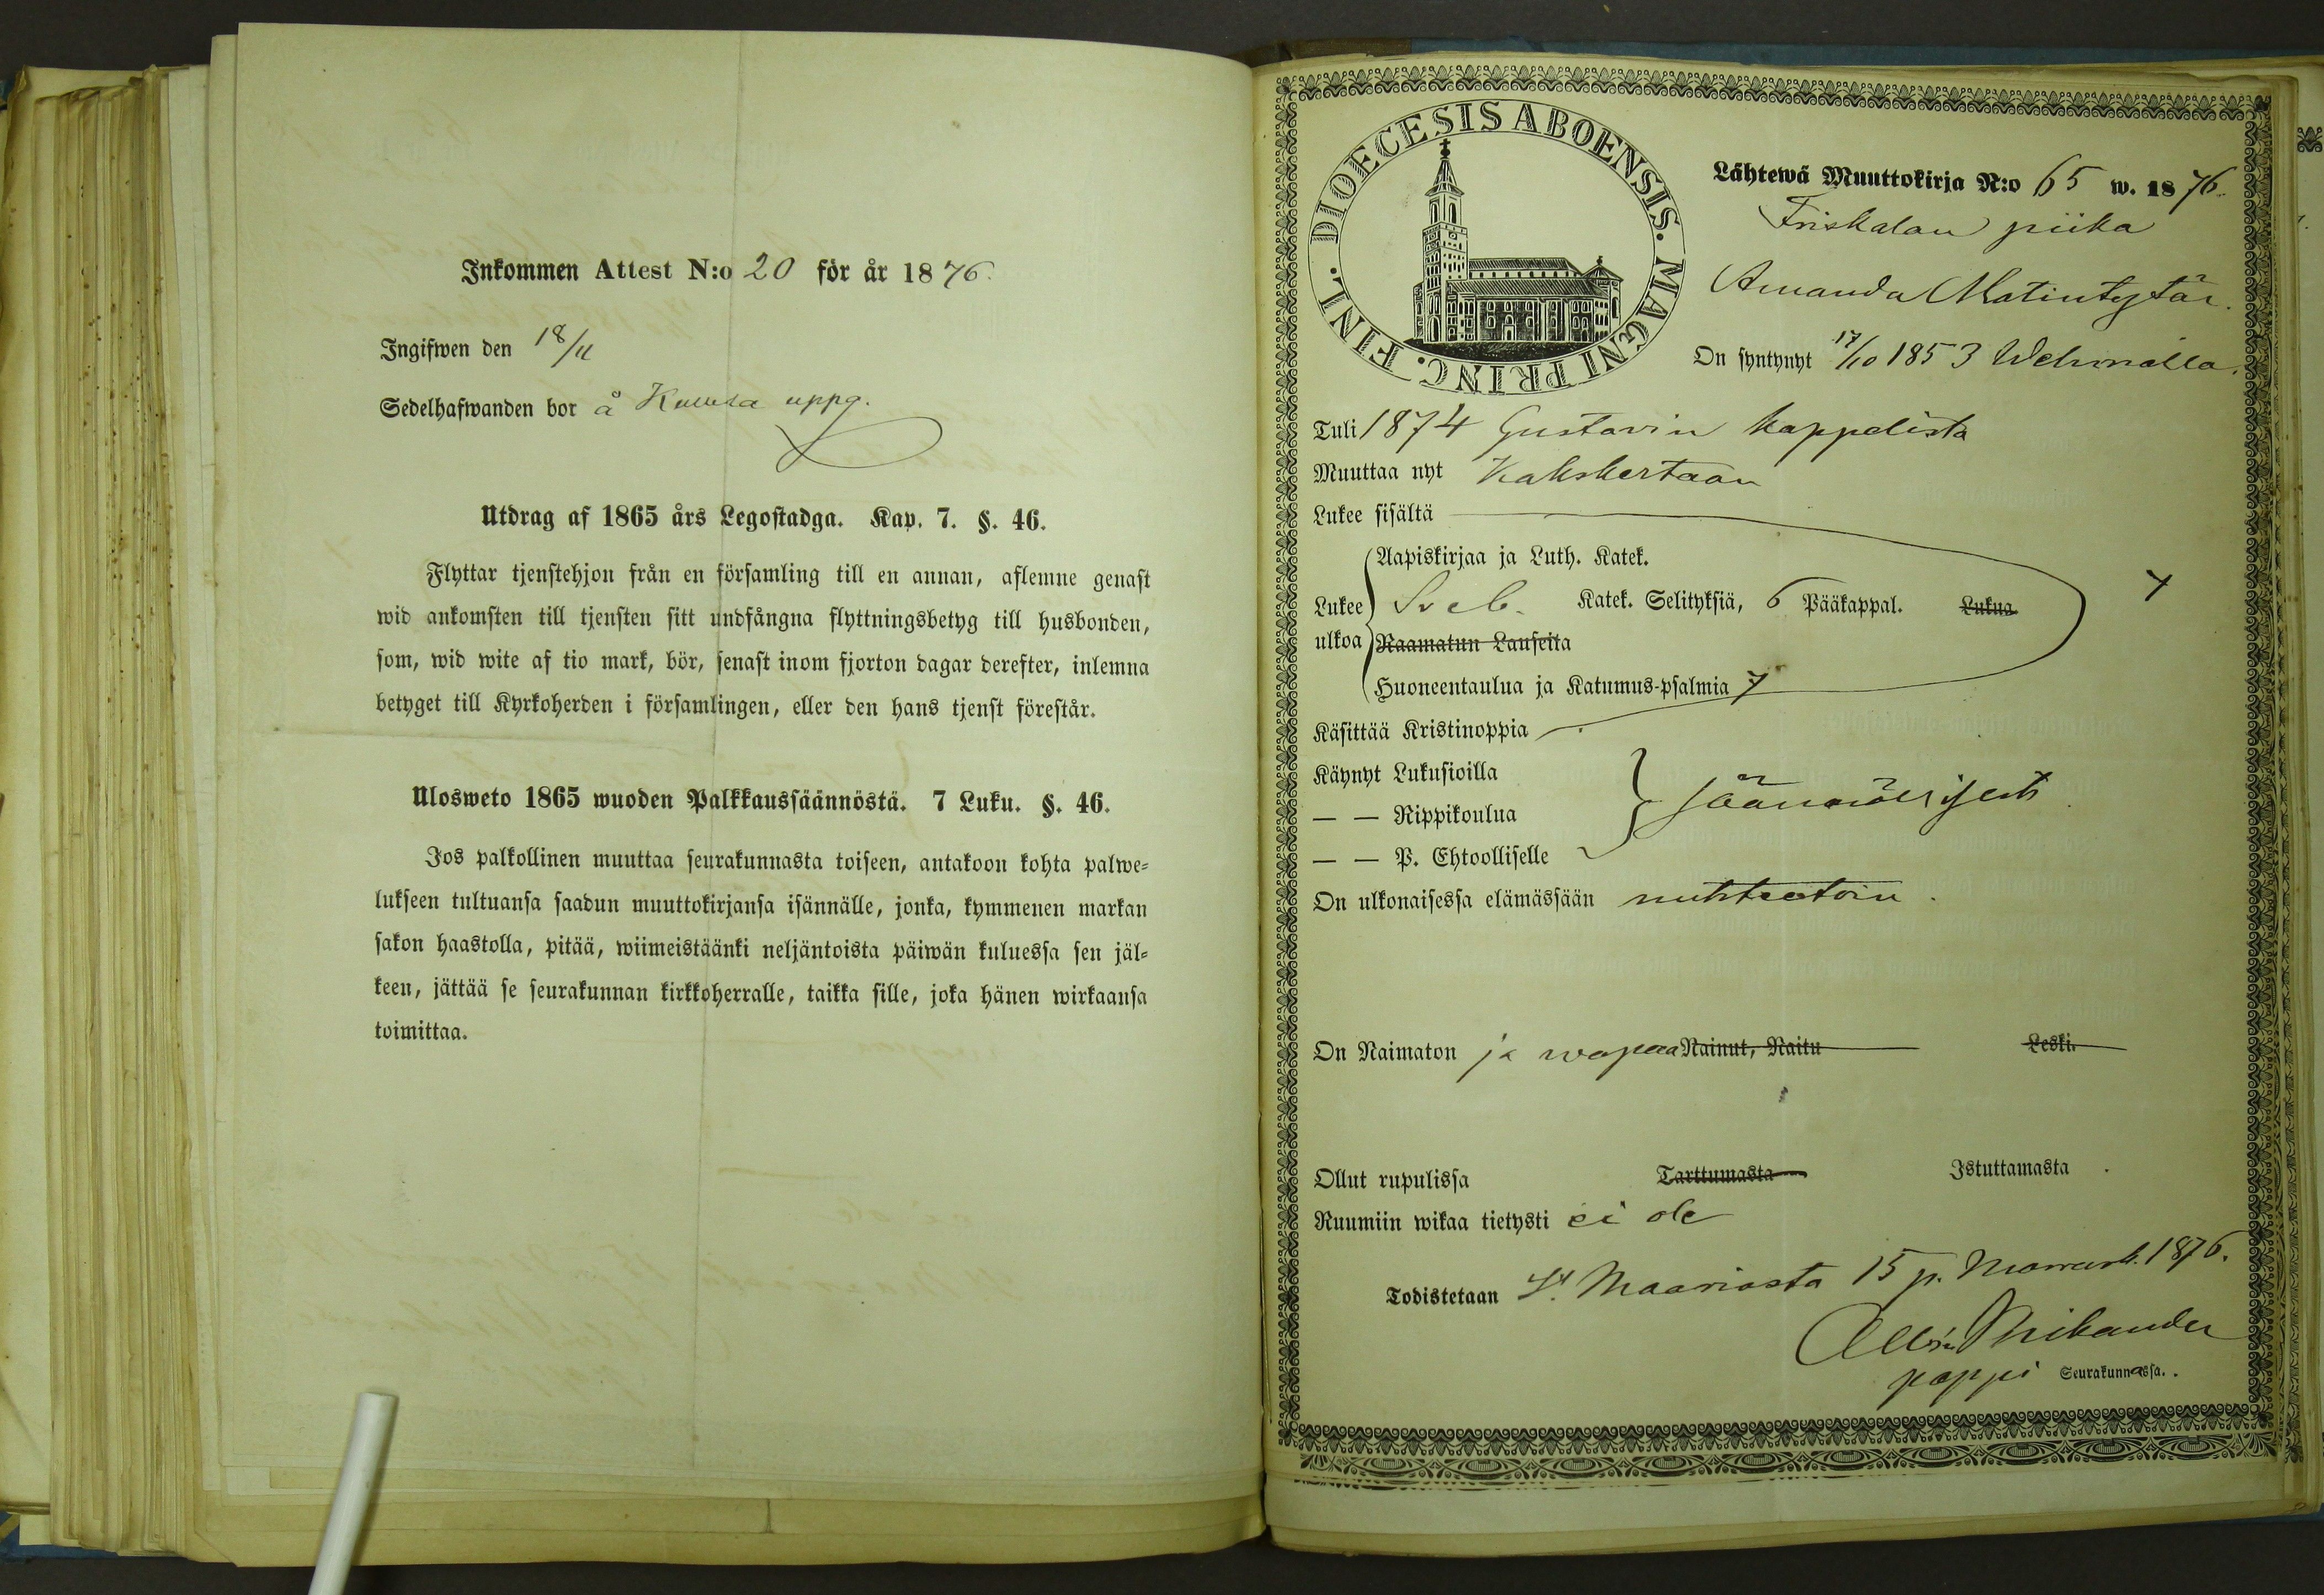 Inkommen Attest N:o 20 för år 1876.
Ingifwen den 18/11
Sedelhafwanden bor å uppg.
Utdrag af 1865 års Legostadga. Kap. 7. §. 46.
Flyttar tjenstehjon från en församling till en annan, aflemne genast
wid ankomsten till tjensten sitt undfångna flyttningsbetyg till husbonden,
som, wid wite af tio mark, bör, senast inom fjorton dagar derefter, inlemna
betyget till Kyrkoherden i församlingen, eller den hans tjenst förestår.
Ulosweto 1865 wuoden Palkkaussäännöstä. 7 Luku. §. 46.
Jos palkollinen muuttaa seurakunnasta toiseen, antakoon kohta palwe-
lukseen tultuansa saadun muuttokirjansa isännälle, jonka, kymmenen markan
sakon haastolla, pitää, wiimeistäänki neljäntoista päiwän kuluessa sen jäl-
keen, jättää se seurakunnan kirkkoherralle, taikka sille, joka hänen wirkaansa
toimittaa.
DIOECESIS ABOENSIS. MAGNI PRINC. FINL.
Lähtewä Muuttokirja N:o 65 w. 1876.
Friskalan piika
Amanda Matintytär.
On syntynyt 17/10 1853 Wehmalla.
Tuli 1874 Gustavin kappelista
Muuttaa nyt Kakskertaan
Lukee sisältä
Aapiskirjaa ja Luth. Katek.
Lukee Sveb. Katek. Selityksiä, 6 Pääkappal. Lukua
ulkoa Raamatun Lauseita
Huoneentaulua ja Katumus-psalmia 7
Käsittää Kristinoppia
Käynyt Lukusioilla
— — Rippikoulua säännöllisesti
— — P. Ehtoolliselle
On ulkonaisessa elämässään nuhteetoin.
On Naimaton ja wapaa Nainut, Naitu Leski.
Ollut rupulissa Tarttumasta Istuttamasta
Ruumiin wikaa tietysti ei ole
Todistetaan St. Maariasta 15 p. Marrask. 1876.
pappi Seurakunnassa.